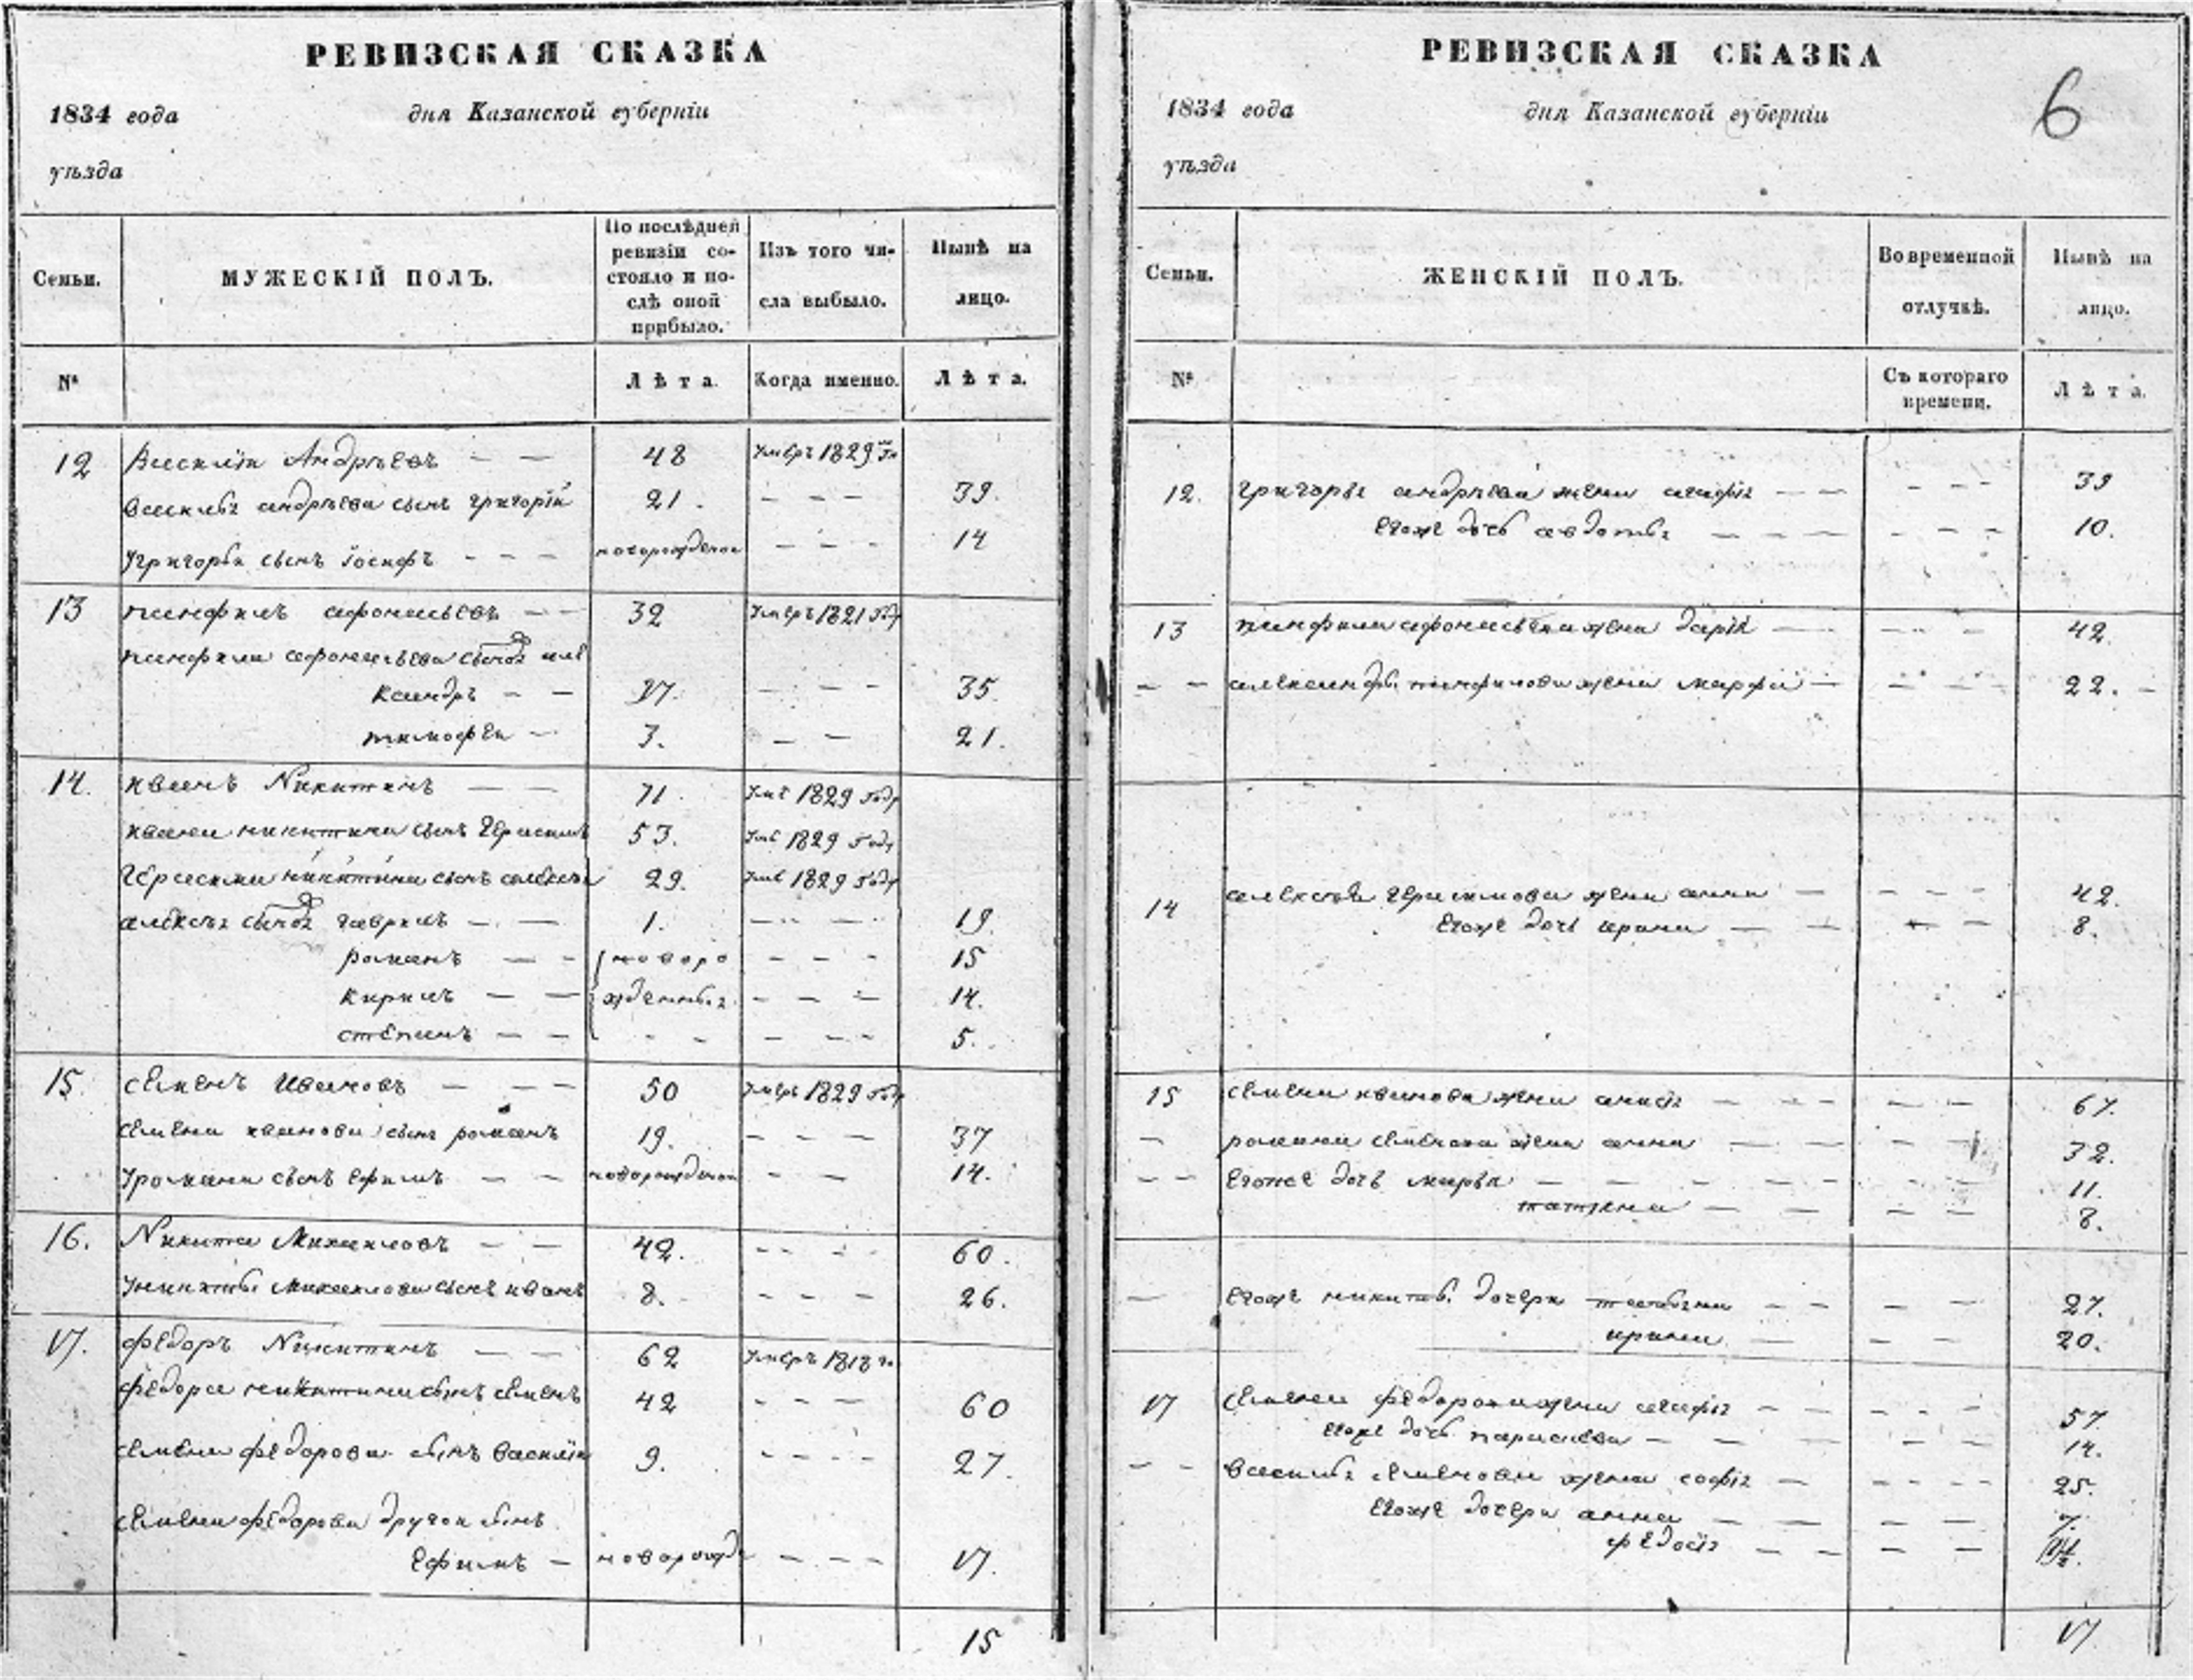 РЕВИЗСКАЯ СКАЗКА
1834 года дня Казанской губерніи
уѣзда
Семьи. МУЖЕСКІЙ ПОЛЪ. По послѣдней ревизіи состояло и послѣ оной прибыло. Изъ того числа выбыло. Нынѣ на лицо.
№ Лѣта. Когда именно. Лѣта.
12 Василіи Андрѣевъ — — 48 Умеръ 1829
Василья андрѣева сынъ григоріи 21. — — — 39.
Угригорья сынъ іосифъ — — — новорожденои — — — 14
13 панфилъ афонасьевъ — — 32 Умеръ 1821 году
панфила афонасьева сыновья але
ксандръ — — 17. — — — 35.
тимофеи — 3. — — 21.
14. иванъ Никитинъ — — 71. Уме 1829 году
ивана никитина сынъ Герасимъ 53. Уме 1829 году
Герасима никитина сынъ алексеи 29. Уме 1829 году
алексея сыновья гаврилъ — — 1. — — — 19.
романъ — — новоро — — — 15
кирилъ — — жденныя — — — 14.
степанъ — — - - — — — 5.
15. семенъ Ивановъ — — — 50 Умеръ 1829 году
семена иванова сынъ романъ 19. — — — 37
Уромана сынъ ефимъ — — новорожденои — — 14.
16. Никита Михаиловъ — — 42. — — — 60.
Уникиты Михаилова сынъ иванъ 8. — — — 26.
17. федоръ Никитинъ — — 62 Умеръ 1818 го
федора никитина сынъ семенъ 42 — — — 60
семена федорова сынъ василіи 9. — — — 27.
семена федорова другои сынъ
ефимъ — новорожд — — — 17.
15
РЕВИЗСКАЯ СКАЗКА
1834 года дня Казанской губерніи 6
уѣзда
Семьи. ЖЕНСКІЙ ПОЛЪ. Во временной отлучкѣ. Нынѣ на лицо.
№ Съ котораго времени. Лѣта.
12. григорья андрѣева жена агафія — — — — — 39
Егоже дочь авдотья — — — — — — 10.
13 панфила афонасьева жена дарія — — — — 42.
— — александра панфилова жена марфа — — — — 22. —
14 алексѣя герасимова жена анна — — — — 42.
Егоже дочь ирина — — — — 8.
15 семена иванова жена анисія — — — — — 67.
— романа семенова жена анна — — — — 32.
— — Егоже дочь марья — — — — — — 11.
татьяна — — — — 8.
— Егоже никиты дочери татьяна — — — — 27.
ирина — — — 20.
17 семена федорова жена агафія — — — — — 57.
Егоже дочь парасева — — — — 14.
— — василья семенова жена софія — — — — — 25.
Егоже дочери анна — — — — 7.
федосія — — — —
17